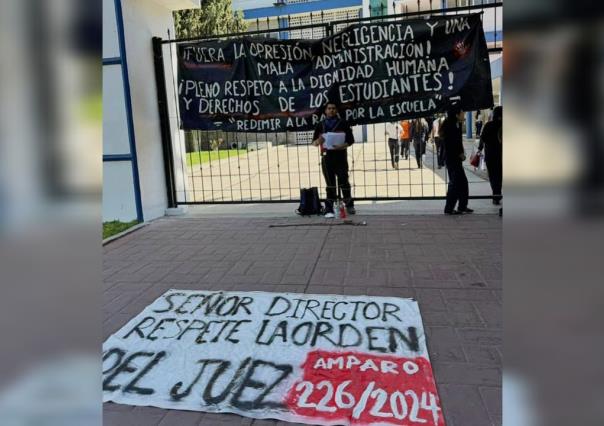 ¡FUERA LA OPRESIÓN, NEGLIGENCIA Y UNA
MALA ADMINISTRACIÓN!
¡PLENO RESPETO A LA DIGNIDAD HUMANA
Y DERECHOS DE LOS ESTUDIANTES!
"REDIMIR A LA POR LA ESCUELA"
SEÑOR DIRECTOR
RESPETE LA ORDEN
DEL JUEZ
AMPARO
226/2024